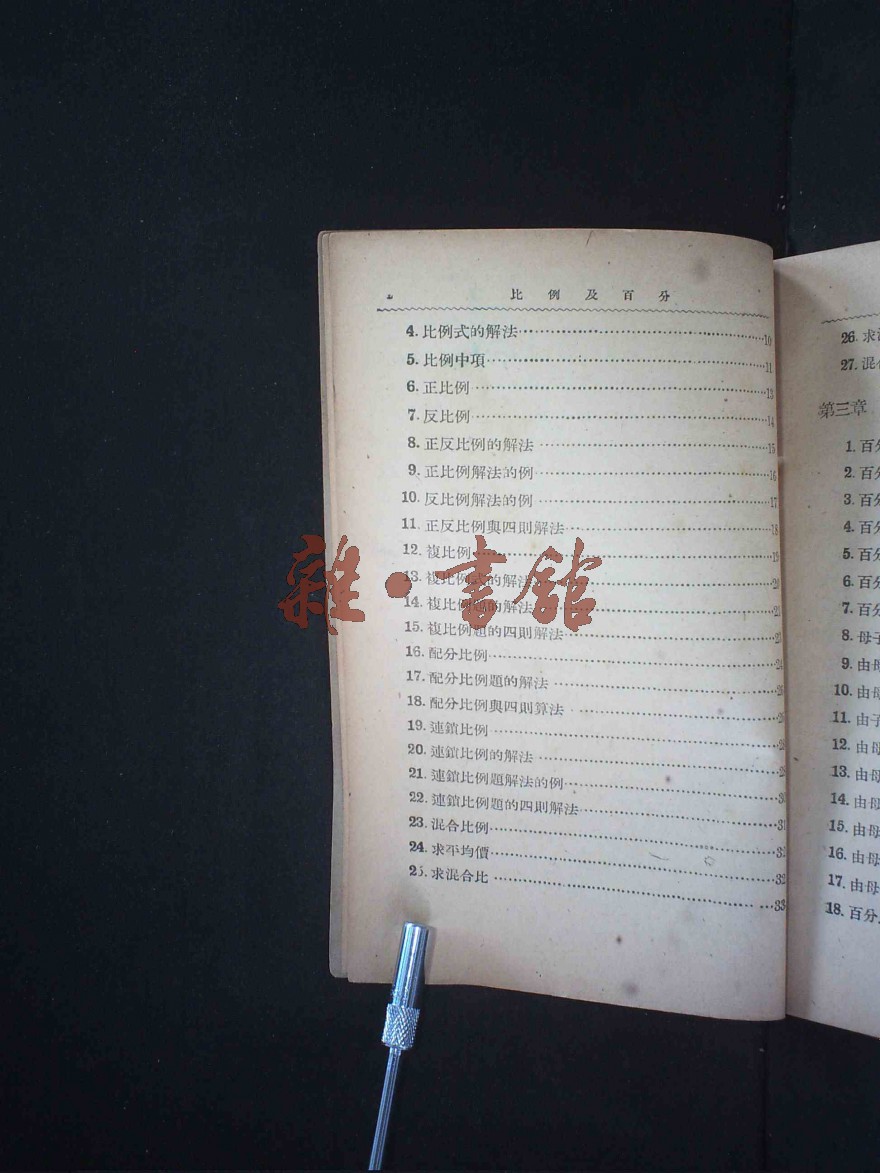 2 比例及百分
4. 比例式的解法 10
5. 比例中項 11
6. 正比例 13
7. 反比例 14
8. 正反比例的解法 15
9. 正比例解法的例 16
10. 反比例解法的例 17
11. 正反比例與四則解法 18
12. 複比例 19
13. 複比例式的解法 20
14. 複比例題的解法 21
15. 複比例題的四則解法 23
16. 配分比例 24
17. 配分比例題的解法
18. 配分比例與四則算法
19. 連鎖比例
20. 連鎖比例的解法
21. 連鎖比例題解法的例 30
22. 連鎖比例題的四則解法 31
23. 混合比例 32
24. 求平均價 32
25. 求混合比 33
雜·書館
26. 求
27. 混
第三章
1. 百分
2. 百分
3. 百分
4. 百分
5. 百分
6. 百分
7. 百分
8. 母子
9. 由母
10. 由母
11. 由子
12. 由母
13. 由母
14. 由母
15. 由母
16. 由母
17. 由母
18. 百分